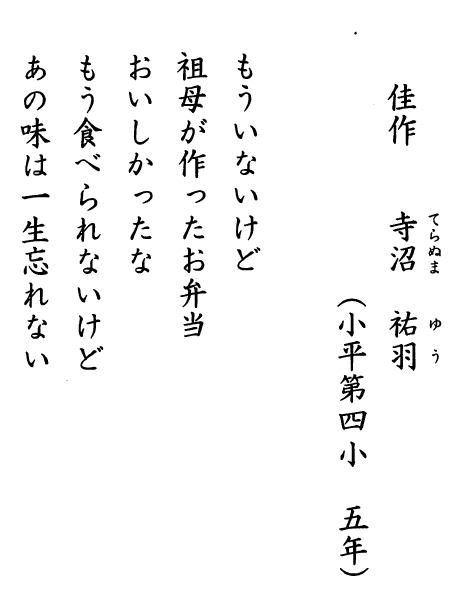 佳作 寺沼 祐羽
てらぬま ゆう
(小平第四小 五年)
もういないけど
祖母が作ったお弁当
おいしかったな
もう食べられないけど
あの味は一生忘れない